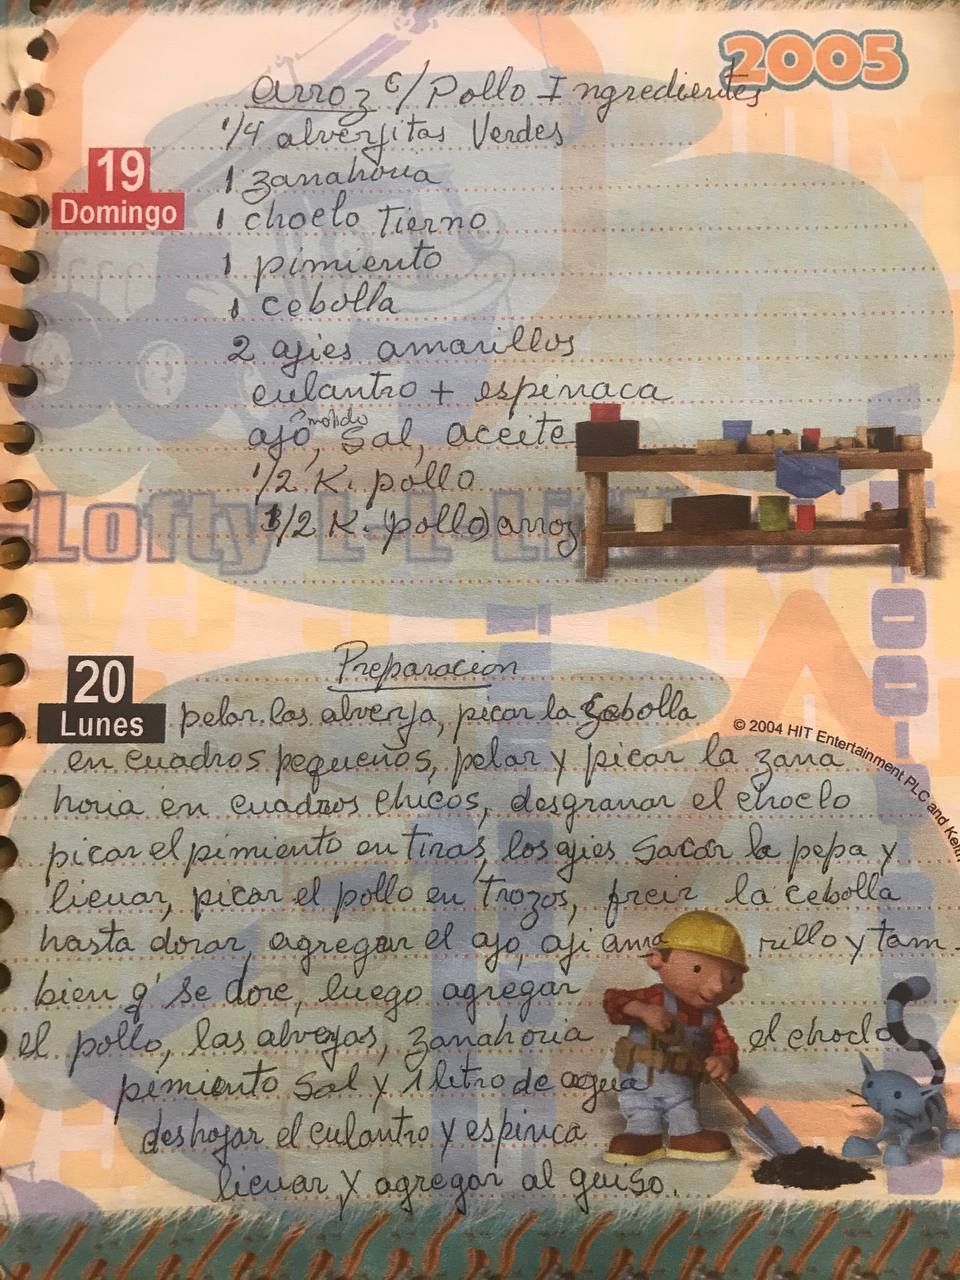 2005
Arroz c/ Pollo Ingredientes
1/4 alverjitas Verdes
19
Domingo
1 zanahoria
1 choclo tierno
1 pimiento
1 cebolla
2 ajies amarillos
culantro + espinaca
ajo molido, sal, aceite
1/2 K. pollo
1/2 K. (pollo) arroz
Lofty
20
Lunes
Preparacion
pelar las alverja, picar la Cebolla
© 2004 HIT Entertainment PLC and Keith
en cuadros pequeños, pelar y picar la zana
horia en cuadros chicos, desgranar el choclo
picar el pimiento en tiras, los ajies sacar la pepa y
licuar, picar el pollo en trozos, freir la cebolla
hasta dorar, agregar el ajo, aji amarillo y tam-
bien q' se dore, luego agregar
el pollo, las alverjas, zanahoria el choclo
pimiento sal y 1 litro de agua
deshojar el culantro y espinica
licuar y agregar al guiso.